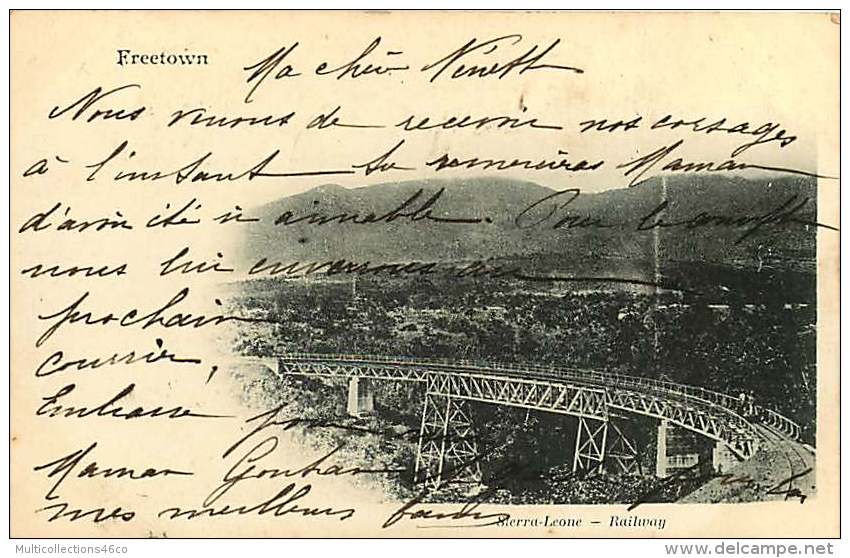 Freetown
Ma chère Ninett
Nous venons de recevoir nos corsages
à l'instant tu remercieras Maman
d'avoir été si aimable. Pour le
nous lui enverrons au
prochain
courrier,
Embrasse pour
Maman
mes meilleurs
Sierra-Leone - Railway
Multicollections46co
http://www.delcampe.net